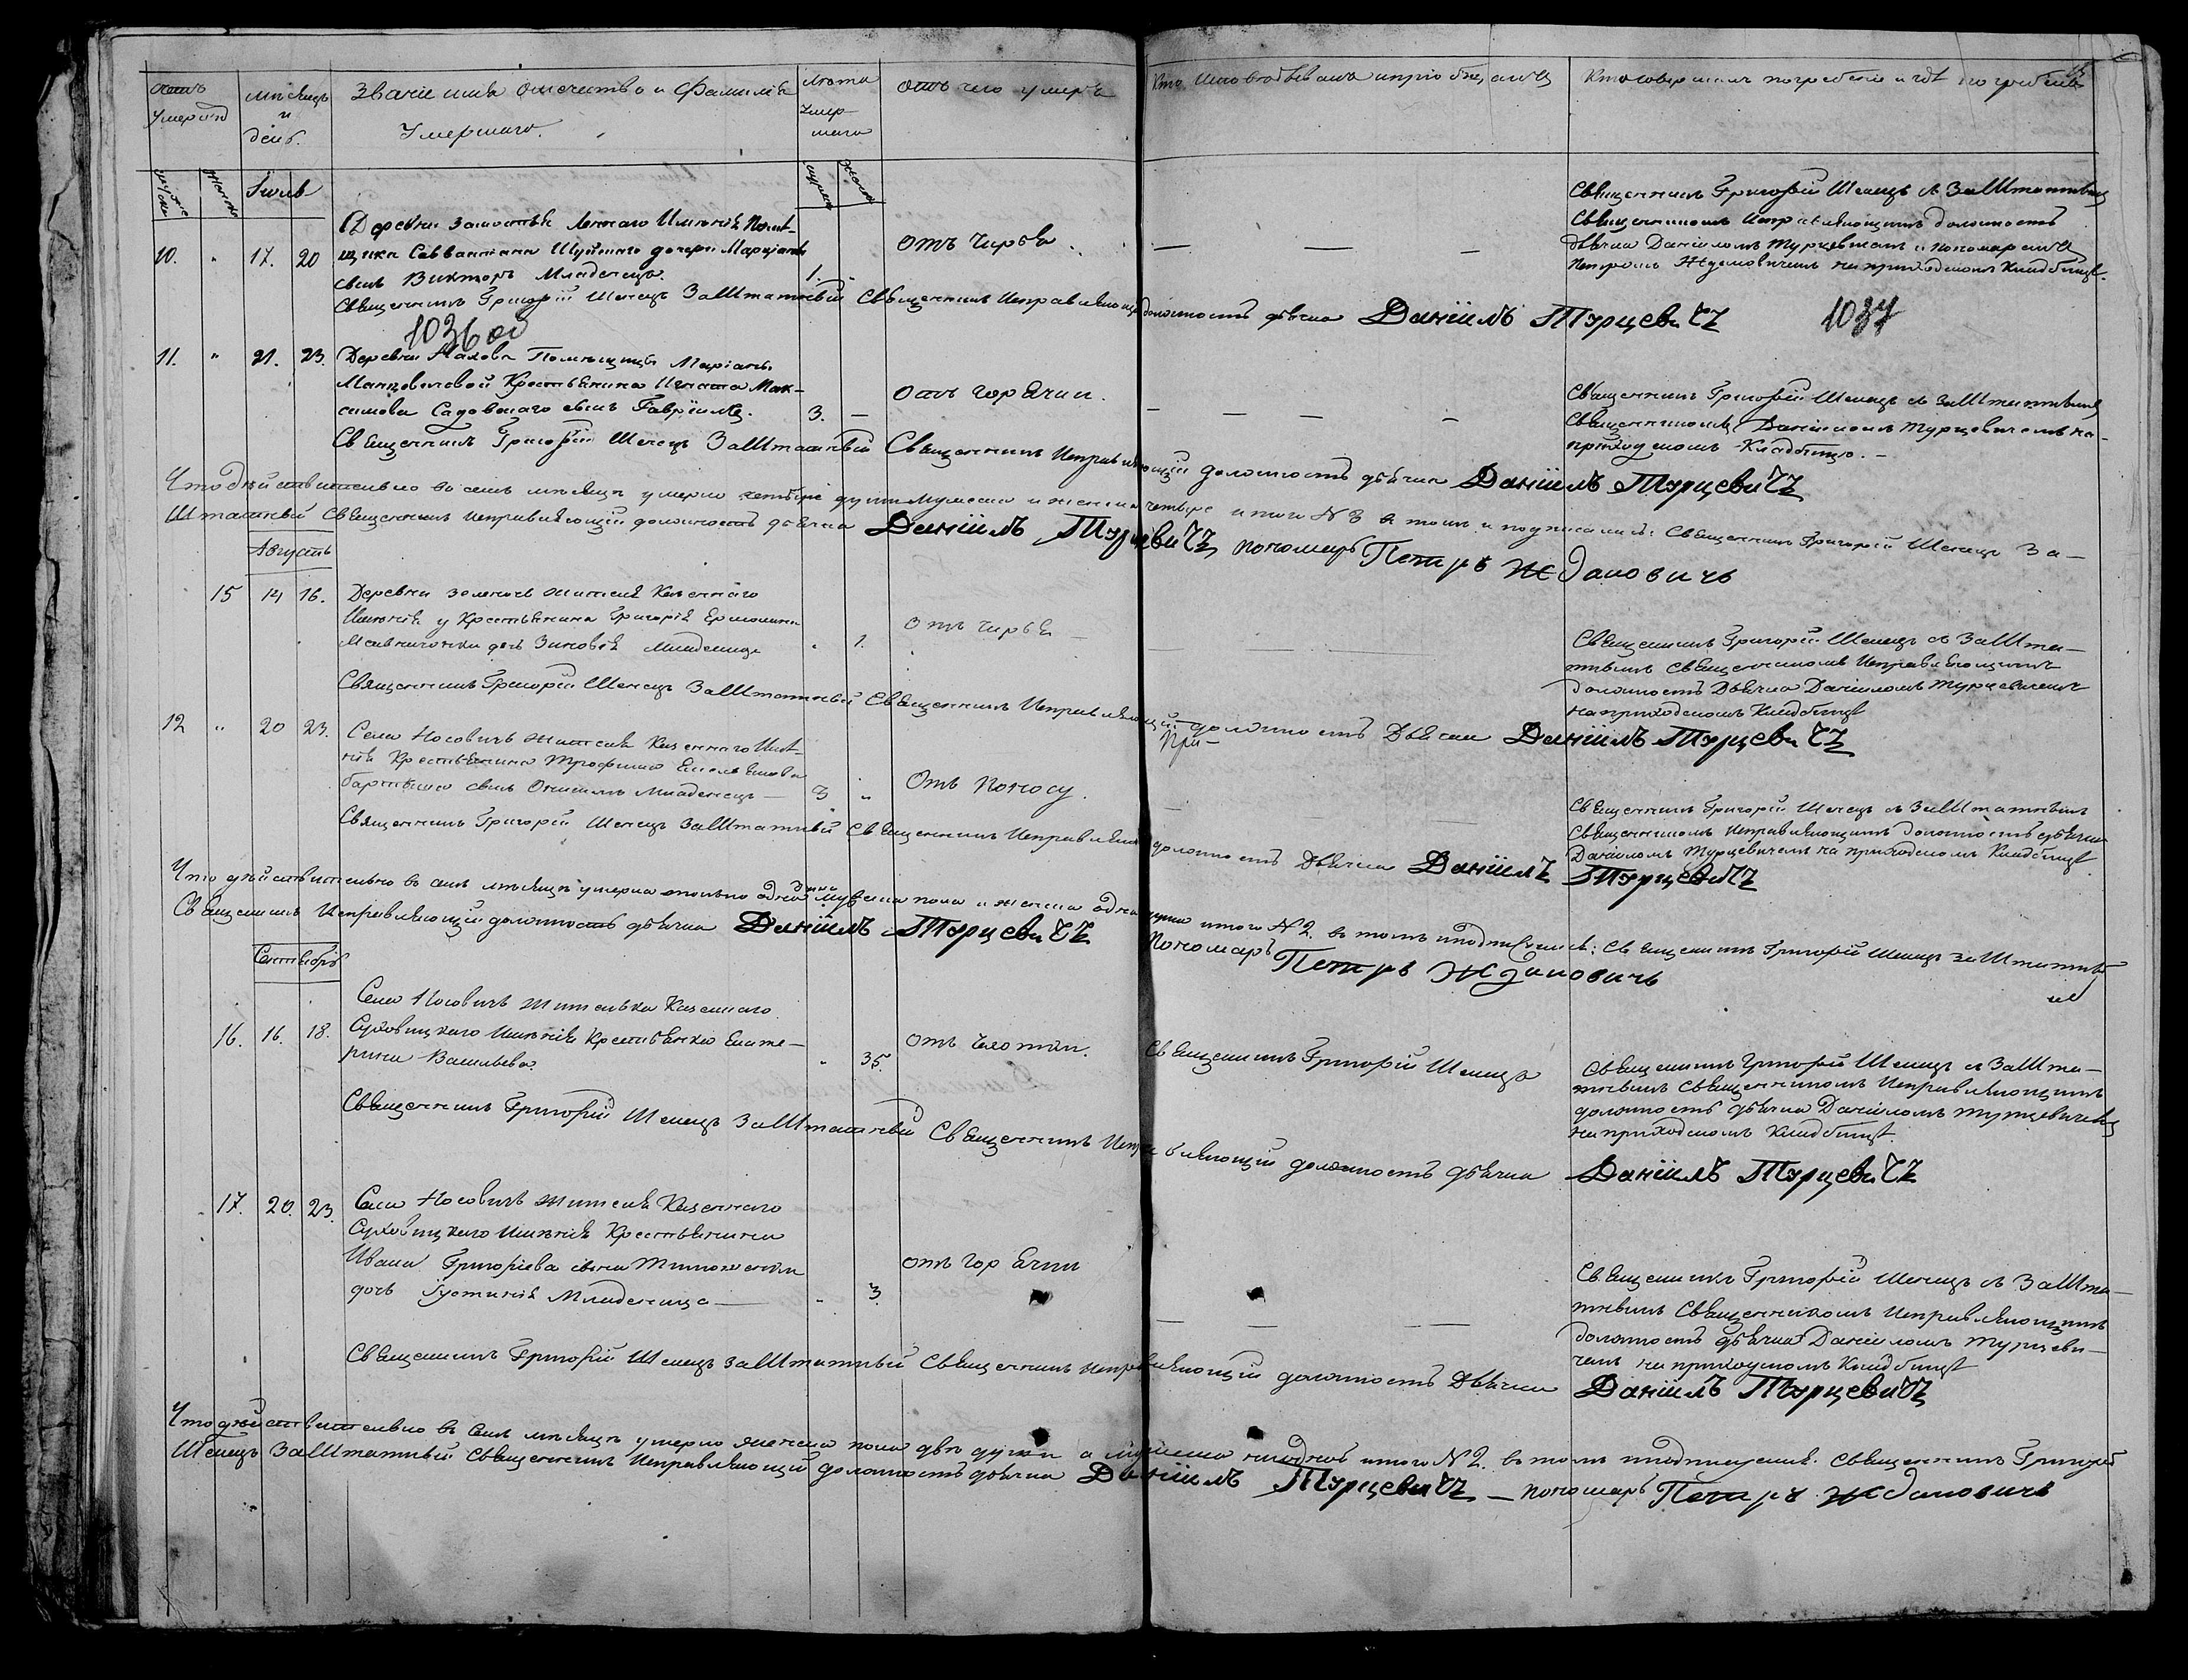 Счетъ умершихъ
Мѣсяцъ и день.
Званіе имя отечество и Фамилія Умершаго.
Лѣта Умершаго
Отъ чего умеръ
Кто Исповѣдывалъ и пріобщалъ
Кто совершалъ погребеніе и гдѣ погребенъ
мужеска
женска
Іюль
мужеска
женска
10. " 17. 20
Деревни Лентаго Имѣнія Помѣ-
щика Шуйскаго
сынъ Викторъ Младенецъ. 1.
Отъ Чирья.
Священникъ Григорій Шелецъ съ ЗаШтатнымъ
Священникомъ Исправляющимъ должность
дьячка Даніиломъ Турцевичемъ и пономаремъ
Петромъ Ждановичемъ на приходскомъ кладбищѣ.
Священникъ Григорій Шелецъ ЗаШтатный Священникъ Исправляющій должность дьячка Даніилъ Турцевичъ
1036 об
1037
11. " 21. 23.
Деревни Помѣщицы Маріаны
Крестьянина Игната Мак-
симова Садовскаго сынъ Гавріилъ. 3. —
Отъ горячки.
Священникъ Григорій Шелецъ съ ЗаШтатнымъ
Священникомъ Даніиломъ Турцевичемъ на
приходскомъ Кладбищѣ. —
Священникъ Григорій Шелецъ ЗаШтатный Священникъ Исправляющій должность дьячка Даніилъ Турцевичъ
Что дѣйствительно въ семъ мѣсяцѣ умерло душъ мужеска и женска четыре итого № 8 въ томъ и подписались: Священникъ Григорій Шелецъ За—
Штатный Священникъ Исправляющій должность дьячка Даніилъ Турцевичъ, пономарь Петръ Ждановичъ
Августъ
15 14 16.
Деревни жителя Казеннаго
Имѣнія у Крестьянина Григорія Ермолина
дочь Зиновія Младеница " 1.
Отъ Чирья —
Священникъ Григорій Шелецъ съ ЗаШта—
тнымъ Священникомъ Исправляющимъ
должность Дьячка Даніиломъ Турцевичемъ
на приходскомъ Кладбищѣ
Священникъ Григорій Шелецъ ЗаШтатный Священникъ Исправляющій должность Дьячка Даніилъ Турцевичъ
При-
12 " 20 23.
Села Носовичъ жителя Казеннаго Имѣ-
нія Крестьянина Трофима Емельянова
сынъ Онисимъ Младенецъ — 3 "
Отъ Поносу.
Священникъ Григорій Шелецъ съ ЗаШтатнымъ
Священникомъ Исправляющимъ должность дьячка
Даніиломъ Турцевичемъ на приходскомъ Кладбищѣ
Священникъ Григорій Шелецъ ЗаШтатный Священникъ Исправляющій должность Дьячка Даніилъ Турцевичъ
Что дѣйствительно въ семъ мѣсяцѣ умерла одна душа мужеска пола и женска одна душа итого № 2. въ томъ и подписались: Священникъ Григорій Шелецъ заШтатный
Священникъ Исправляющій должность дьячка Даніилъ Турцевичъ Пономарь Петръ Ждановичъ
Сентябрь
16. 16. 18.
Села Носовичъ жителька Казеннаго
Суховицкаго Имѣнія Крестьянка Екате-
рина Васильева. " 35.
Отъ Чахотки.
Священникъ Григорій Шелецъ
Священникъ Григорій Шелецъ съ ЗаШта—
тнымъ Священникомъ Исправляющимъ
должность дьячка Даніиломъ Турцевичемъ
на приходскомъ Кладбищѣ.
Священникъ Григорій Шелецъ ЗаШтатный Священникъ Исправляющій должность дьячка Даніилъ Турцевичъ
17. 20. 23.
Села Носовичъ жителя Казеннаго
Суховицкаго Имѣнія Крестьянина
Ивана Григоріева сына Тимошенки
дочь Іустинія Младеница — " 3.
отъ Горячки
Священникъ Григорій Шелецъ съ ЗаШта—
тнымъ Священникомъ Исправляющимъ
должность дьячка Даніиломъ Турцеви—
чемъ на приходскомъ Кладбищѣ
Священникъ Григорій Шелецъ ЗаШтатный Священникъ Исправляющій должность Дьячка Даніилъ Турцевичъ
Что дѣйствительно въ семъ мѣсяцѣ умерло женска пола двѣ души а мужеска ни одной итого № 2. въ томъ и подписались: Священникъ Григорій
Шелецъ ЗаШтатный Священникъ Исправляющій должность дьячка Даніилъ Турцевичъ — пономарь Петръ Ждановичъ